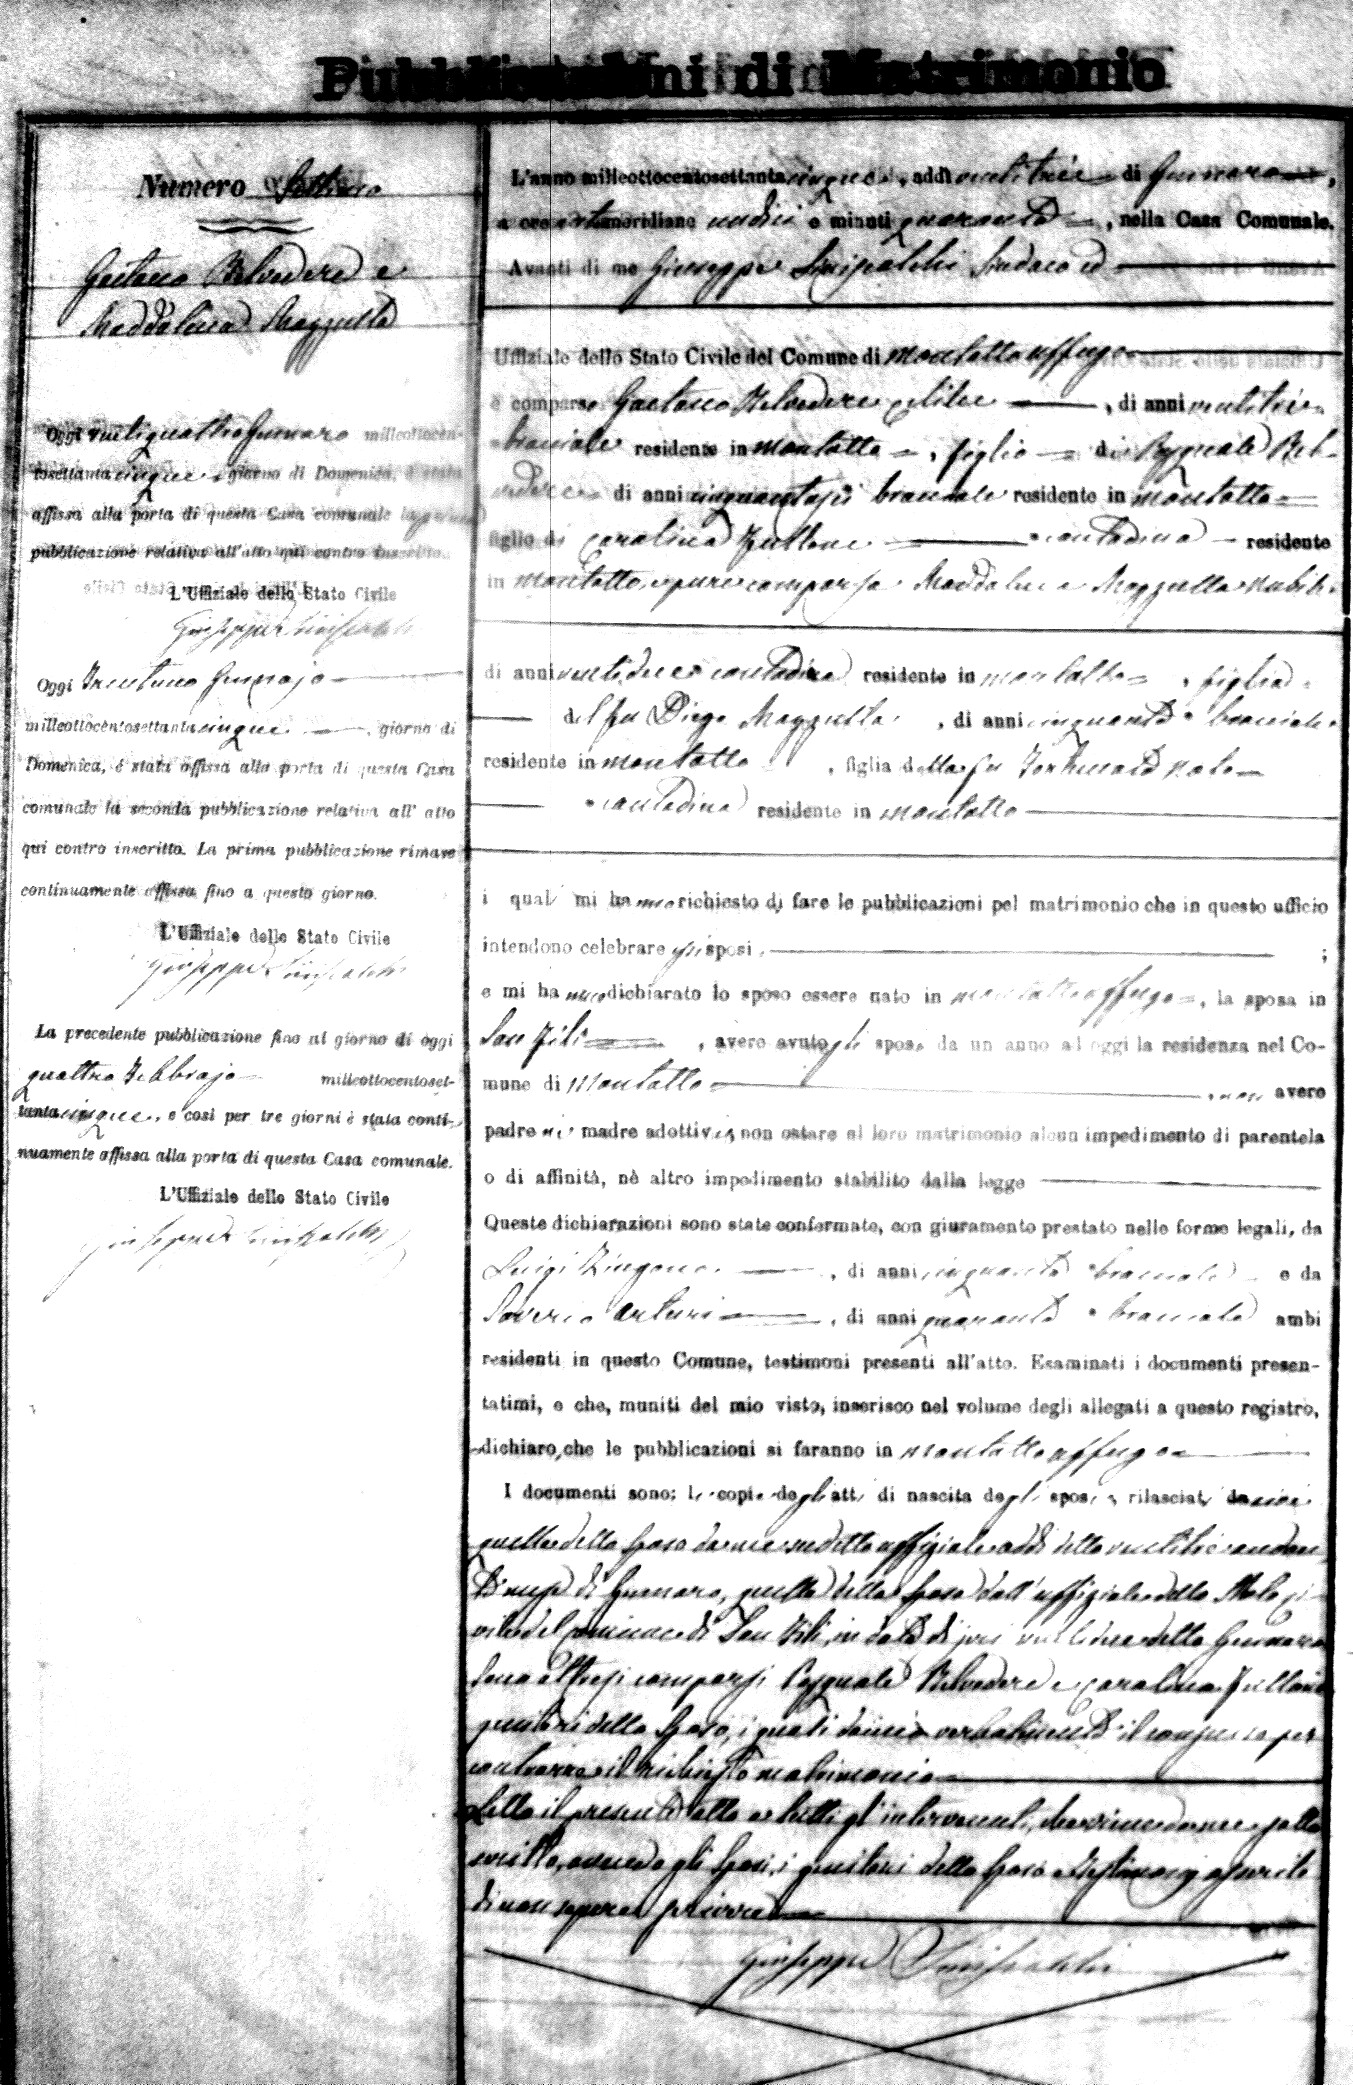 Pubblicazioni di Matrimonio
Numero Settimo
Gaetano Belvedere e
Maddalena Mazzulla
Oggi ventiquattro Gennaro milleottocen-
tosettantacinque giorno di Domenica, è stata
affissa alla porta di questa Casa comunale la prima
pubblicazione relativa all'atto qui contro inscritto.
L'Uffiziale dello Stato Civile
Giuseppe Siniscalchi
Oggi Trentuno Gennajo
milleottocentosettantacinque, giorno di
Domenica, è stata affissa alla porta di questa Casa
comunale la seconda pubblicazione relativa all' atto
qui contro inscritto. La prima pubblicazione rimase
continuamente affissa fino a questo giorno.
L'Uffiziale dello Stato Civile
Giuseppe Siniscalchi
La precedente pubblicazione fino al giorno di oggi
quattro Febbrajo milleottocentoset-
tantacinque, e così per tre giorni è stata conti-
nuamente affissa alla porta di questa Casa comunale.
L'Uffiziale dello Stato Civile
Giuseppe Siniscalchi
L'anno milleottocentosettantacinque, addì ventitrè di Gennaro,
a ore antemeridiane undici e minuti quaranta, nella Casa Comunale.
Avanti di me Giuseppe Siniscalchi Sindaco ed
Uffiziale dello Stato Civile del Comune di Montalto Uffugo
è comparso Gaetano Belvedere celibe, di anni ventitrè
bracciale residente in Montalto, figlio di Pasquale Bel-
vedere di anni cinquantasei bracciale residente in Montalto
figlio di Carolina Zullone contadina residente
in Montalto, e pure comparsa Maddalena Mazzulla nubile
di anni ventidue contadina residente in Montalto, figlia
del fu Diego Mazzulla, di anni cinquanta bracciale
residente in Montalto, figlia della fu Fortunata
contadina residente in Montalto
i quali mi hanno richiesto di fare le pubblicazioni pel matrimonio che in questo ufficio
intendono celebrare essi sposi ;
e mi hanno dichiarato lo sposo essere nato in Montalto Uffugo, la sposa in
San Fili, avere avuto gli sposi da un anno ad oggi la residenza nel Co-
mune di Montalto, non avere
padre nè madre adottivi, non ostare al loro matrimonio alcun impedimento di parentela
o di affinità, nè altro impedimento stabilito dalla legge
Queste dichiarazioni sono state confermate, con giuramento prestato nelle forme legali, da
Luigi, di anni cinquanta bracciale e da
Saverio Arturi, di anni quaranta bracciale ambi
residenti in questo Comune, testimoni presenti all'atto. Esaminati i documenti presen-
tatimi, e che, muniti del mio visto, inserisco nel volume degli allegati a questo registro,
dichiaro che le pubblicazioni si faranno in Montalto Uffugo
I documenti sono: le copie degli atti di nascita degli sposi, rilasciati
quella dello sposo da me sudetto uffiziale addì detto ventitrè andan-
te mese di Gennaro, quella della sposa dall'uffiziale dello Stato ci-
vile del Comune di San Fili, in data di jeri ventidue detto Gennaro
Sono altresì comparsi Pasquale Belvedere e Carolina Zullone
genitori dello sposo, i quali danno verbalmente il consenso per
contrarre il richiesto matrimonio
Letto il presente atto a tutti gl'intervenuti, da me sotto
scritto, avendo gli sposi, i genitori dello sposo e testimonj asserito
di non sapere scrivere
Giuseppe Siniscalchi